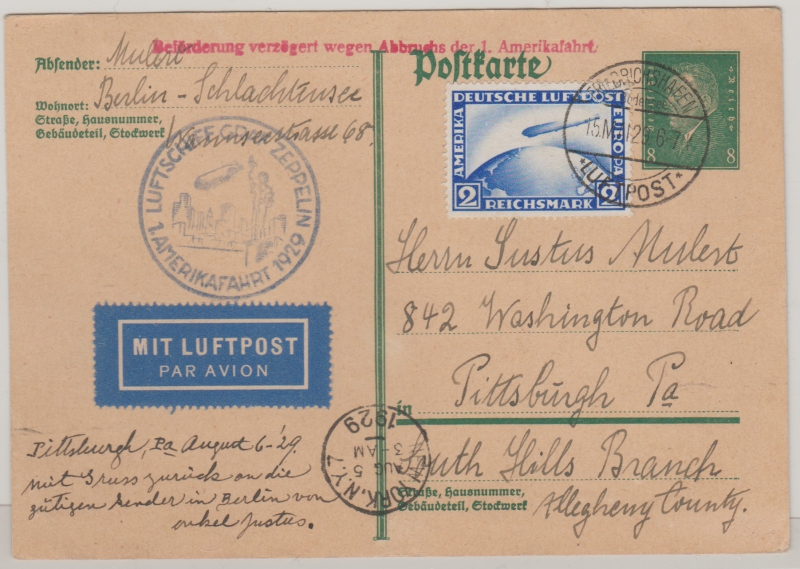 Beförderung verzögert wegen Abbruchs der 1. Amerikafahrt.
Absender: Mulert
Wohnort: Berlin - Schlachtensee
Straße, Hausnummer,
Gebäudeteil, Stockwerk Wannseestrasse 68.
LUFTSCHIFF GRAF ZEPPELIN
1. AMERIKAFAHRT 1929
MIT LUFTPOST
PAR AVION
Pittsburgh, Pa August 6-'29.
mit Gruss zurück an die
gütigen Sender in Berlin von
onkel Justus.
Postkarte
DEUTSCHE LUFTPOST
AMERIKA
EUROPA
2 REICHSMARK 2
FRIEDRICHSHAFEN
15.MAI.29.6-7
*LUFTPOST*
8 8
Herrn Justus Mulert
842 Washington Road
in Pittsburgh Pa
South Hills Branch
Straße, Hausnummer,
Gebäudeteil, Stockwerk
Allegheny County.
YORK, N.Y. 7
AUG 5
3-AM
1929